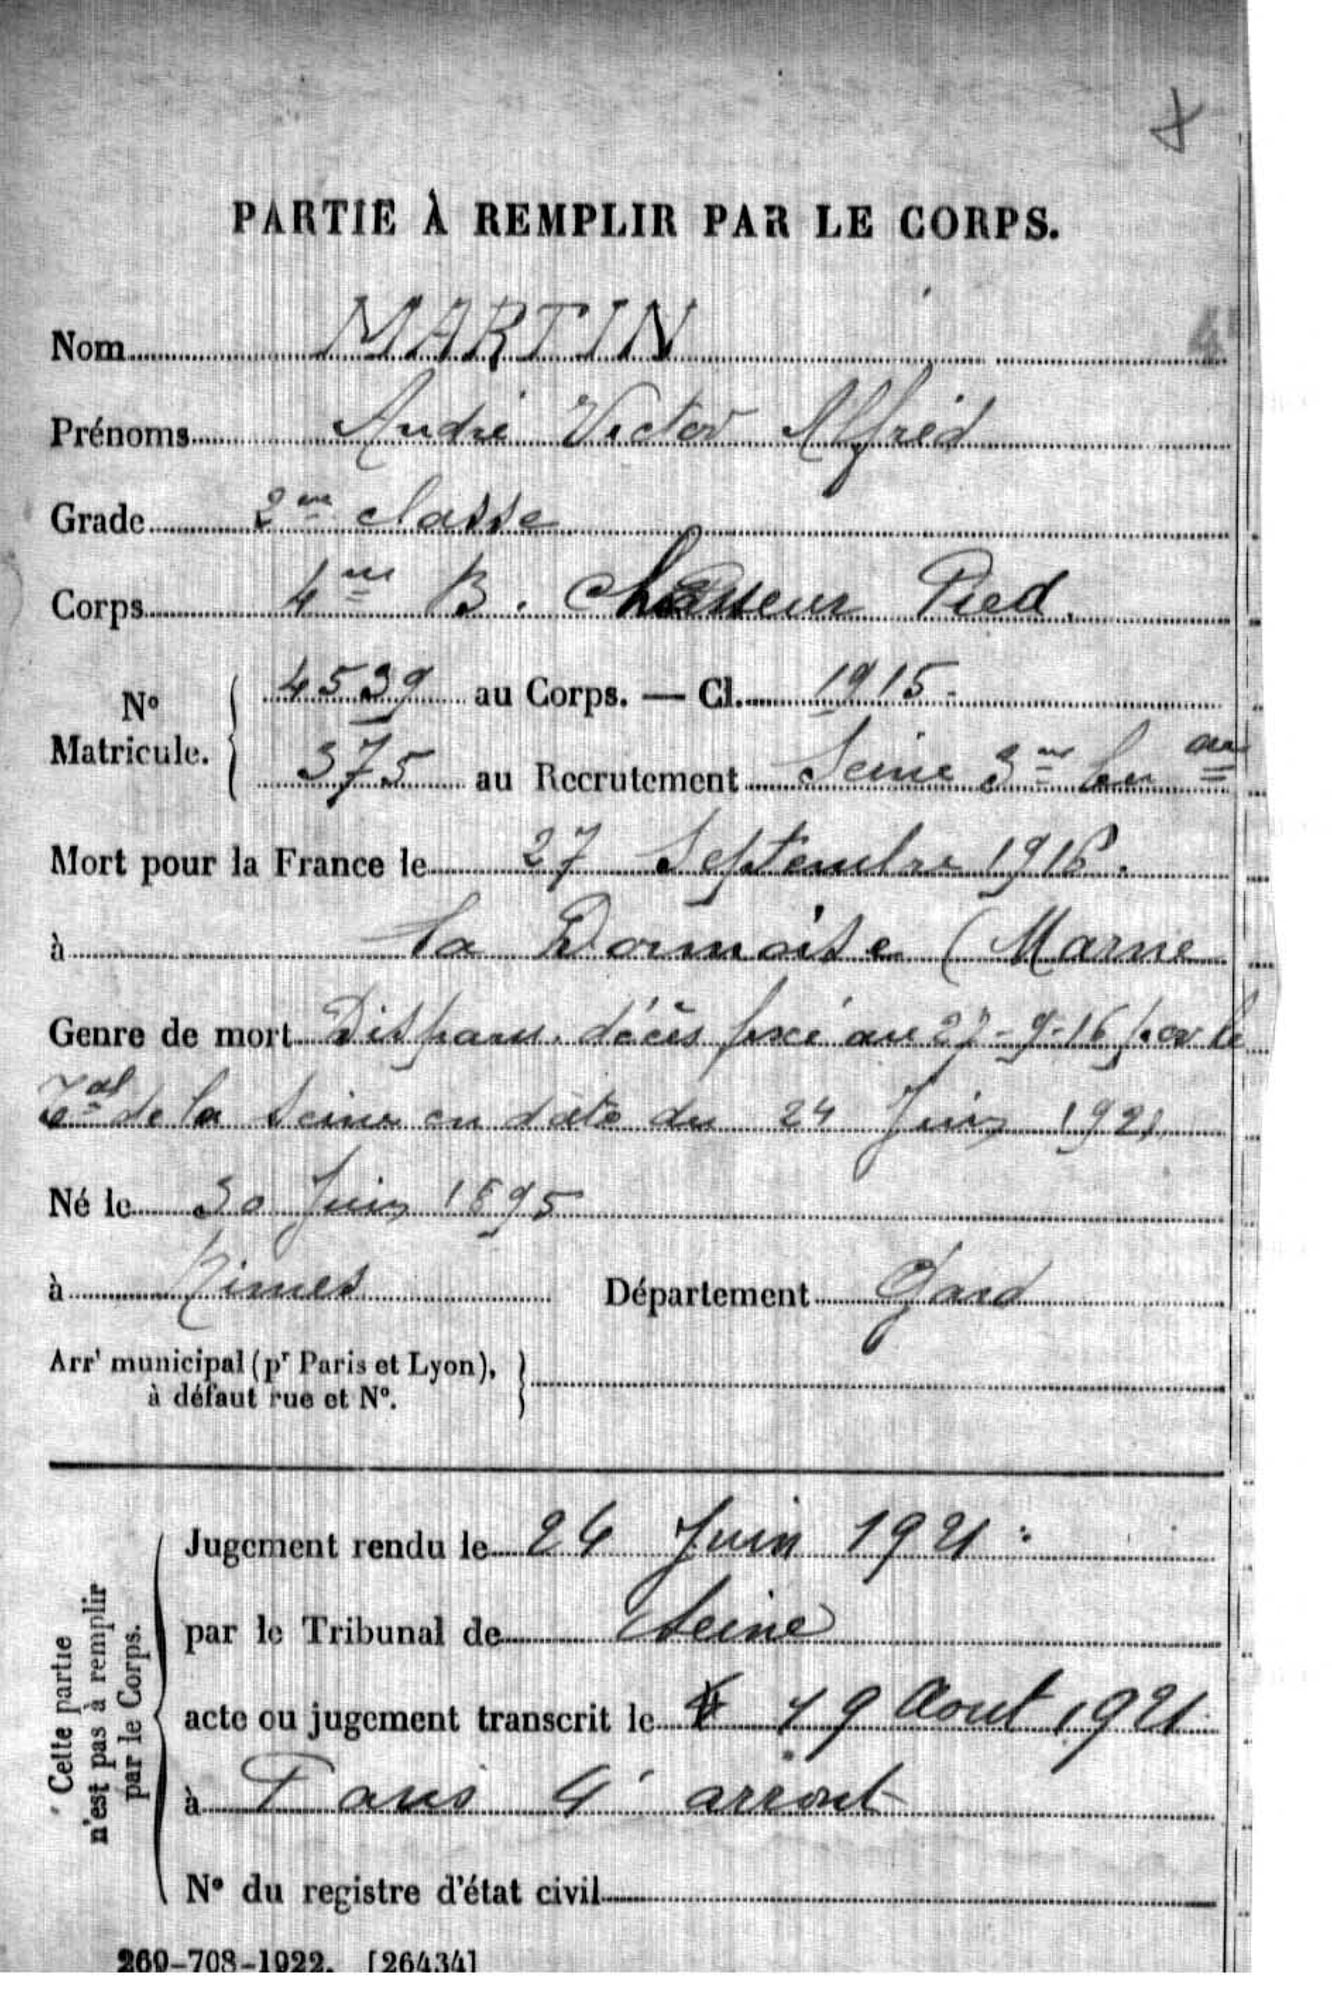 PARTIE À REMPLIR PAR LE CORPS.
Nom MARTIN
Prénoms André Victor Alfred
Grade 2me classe
Corps 4me B. Chasseur Pied.
No Matricule. 4539 au Corps. — Cl. 1915.
375 au Recrutement Seine 3me Bau
Mort pour la France le 27 Septembre 1916.
à la Dormoise (Marne
Genre de mort Disparu. décès fixé au 27-9-16 par le
Tal de la Seine en date du 24 Juin 1921
Né le 30 Juin 1895
à Nimes Département Gard
Arrt municipal (pr Paris et Lyon),
à défaut rue et No.
Cette partie
n'est pas à remplir
par le Corps.
Jugement rendu le 24 Juin 1921
par le Tribunal de Seine
acte ou jugement transcrit le 19 Aout 1921
à Paris 4e arront
No du registre d'état civil
269-708-1922. [26434]